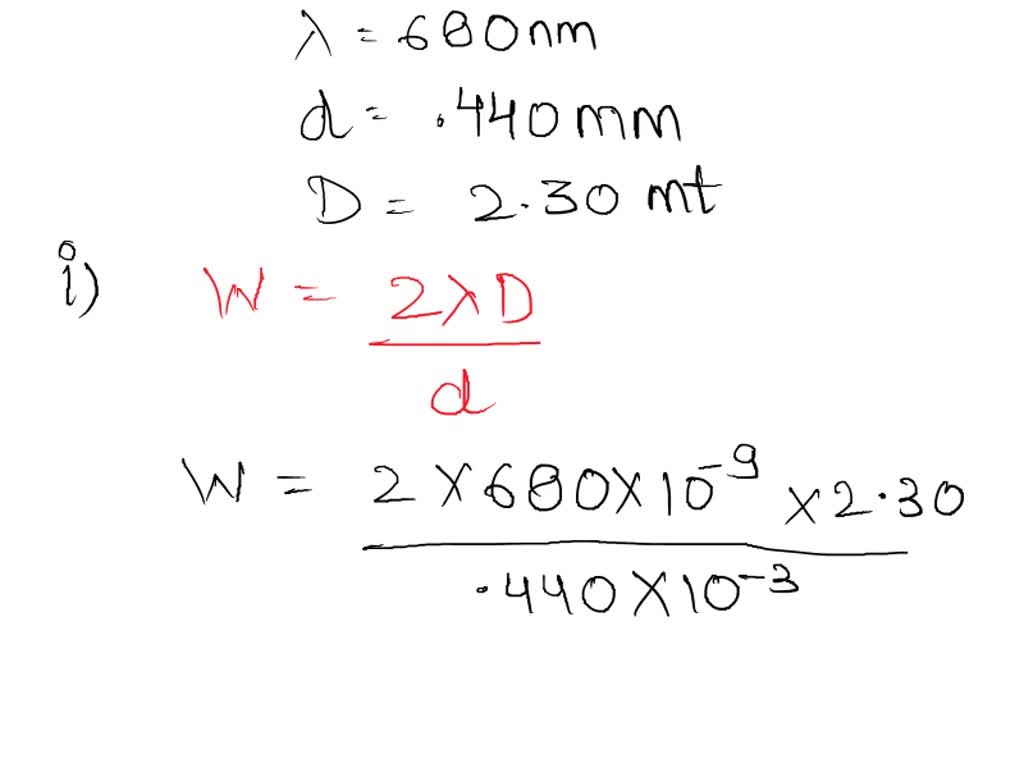 λ = 680nm
d = .440mm
D = 2.30 mt
i) W = 2λD / d
W = 2 × 680 × 10⁻⁹ × 2.30 / .440 × 10⁻³